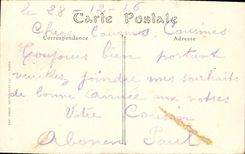 le 28-12-16
Carte Postale
Correspondance Adresse
Chers Cousins, Cousines
Toujours bien portant
veuillez joindre mes souhaits
de bonne année aux notres
Votre Cousin
Paul